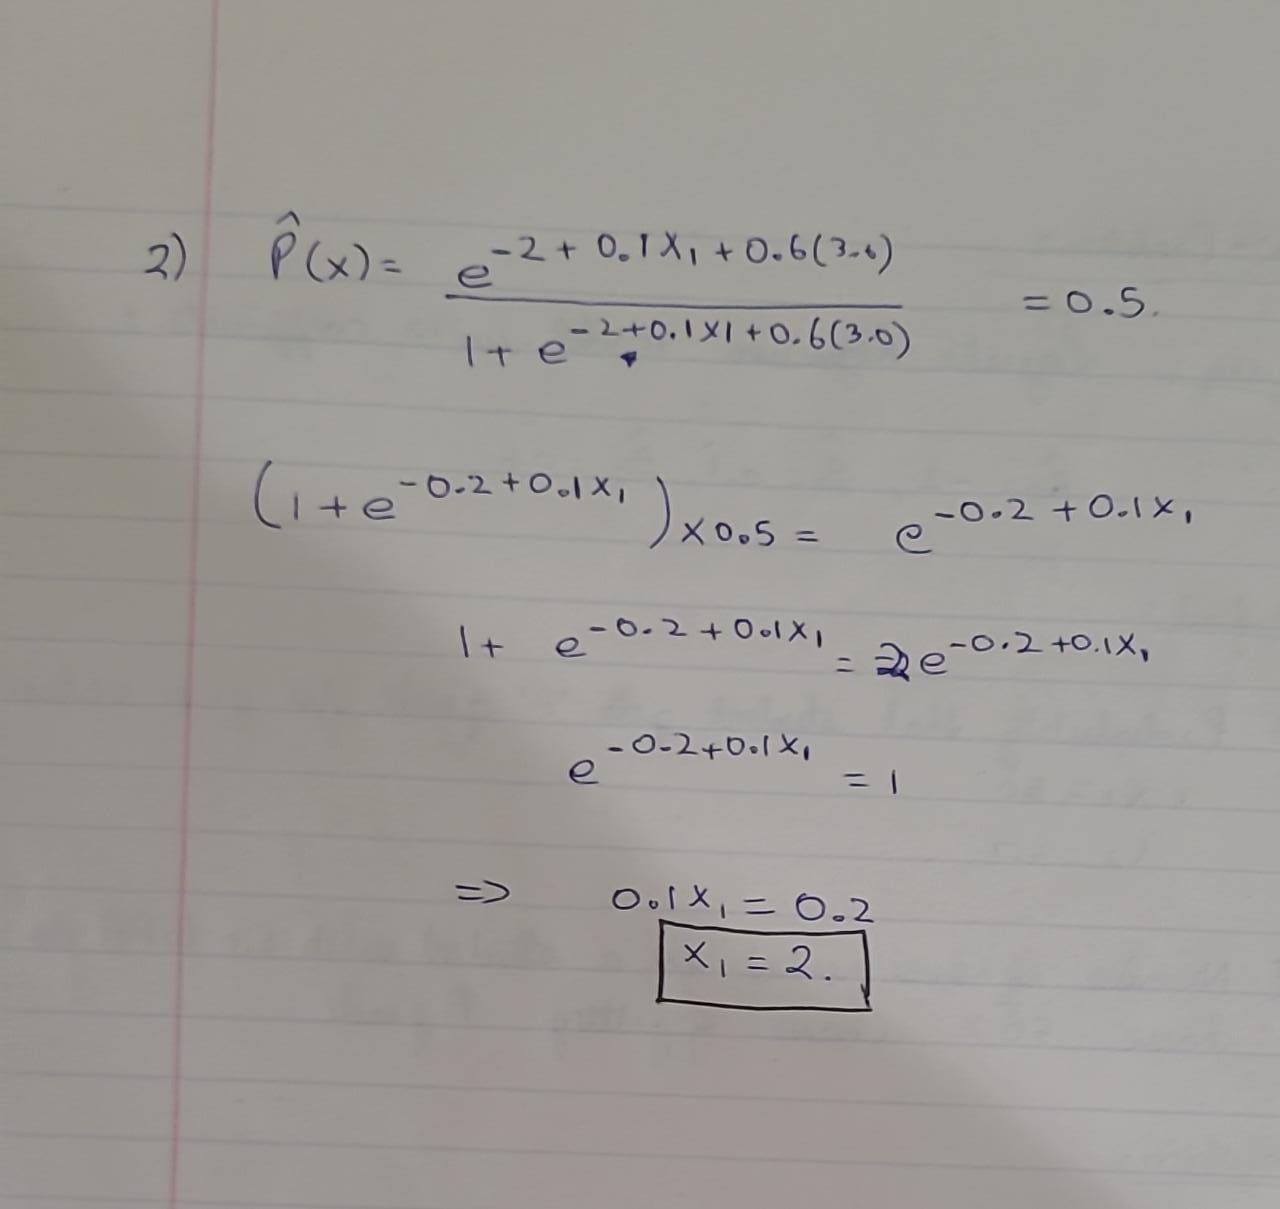 2) P̂(x) = e^(-2 + 0.1x₁ + 0.6(3.0)) / 1 + e^(-2+0.1x1+0.6(3.0)) = 0.5.
(1 + e^(-0.2+0.1x₁)) × 0.5 = e^(-0.2+0.1x₁)
1 + e^(-0.2+0.1x₁) = 2e^(-0.2+0.1x₁)
e^(-0.2+0.1x₁) = 1
=> 0.1x₁ = 0.2
x₁ = 2.